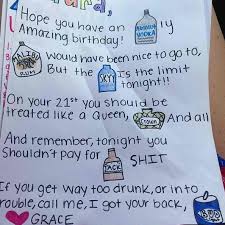 Hope you have an ABSOLUT VODKA ly
Amazing birthday!
MALIBU RUM Would have been nice to go to,
But the SKYY Is the limit
tonight!!
On your 21st you should be
treated like a Queen, Crown And all
And remember, tonight you
Shouldn't pay for JACK SHIT
If you get way too drunk, or into
rouble, call me, I got your back, BUD
GRACE